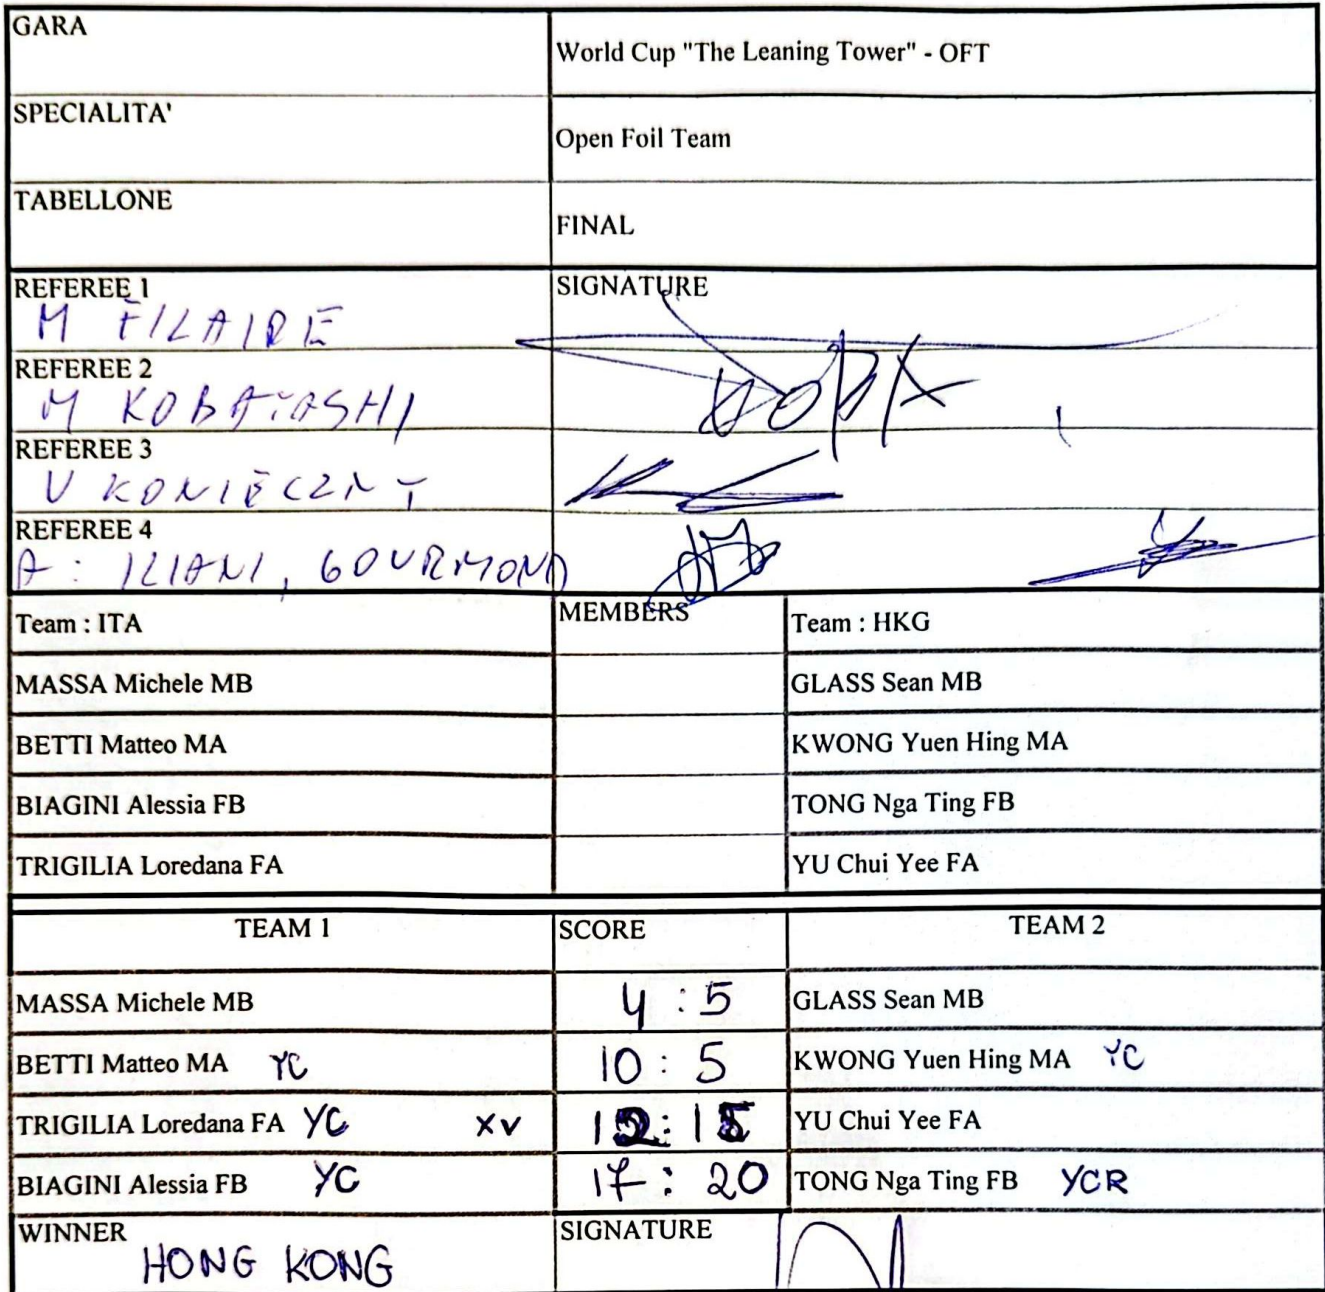 GARA
World Cup "The Leaning Tower" - OFT
SPECIALITA'
Open Foil Team
TABELLONE
FINAL
REFEREE 1 SIGNATURE
M FILAIRE
REFEREE 2
M KOBAYASHI
REFEREE 3
V KONIECZNY
REFEREE 4
A: ILIANI, GOURMOND
Team : ITA MEMBERS Team : HKG
MASSA Michele MB GLASS Sean MB
BETTI Matteo MA KWONG Yuen Hing MA
BIAGINI Alessia FB TONG Nga Ting FB
TRIGILIA Loredana FA YU Chui Yee FA
TEAM 1 SCORE TEAM 2
MASSA Michele MB 4 : 5 GLASS Sean MB
BETTI Matteo MA YC 10 : 5 KWONG Yuen Hing MA YC
TRIGILIA Loredana FA YC XV 12 : 15 YU Chui Yee FA
BIAGINI Alessia FB YC 17 : 20 TONG Nga Ting FB YCR
WINNER SIGNATURE
HONG KONG